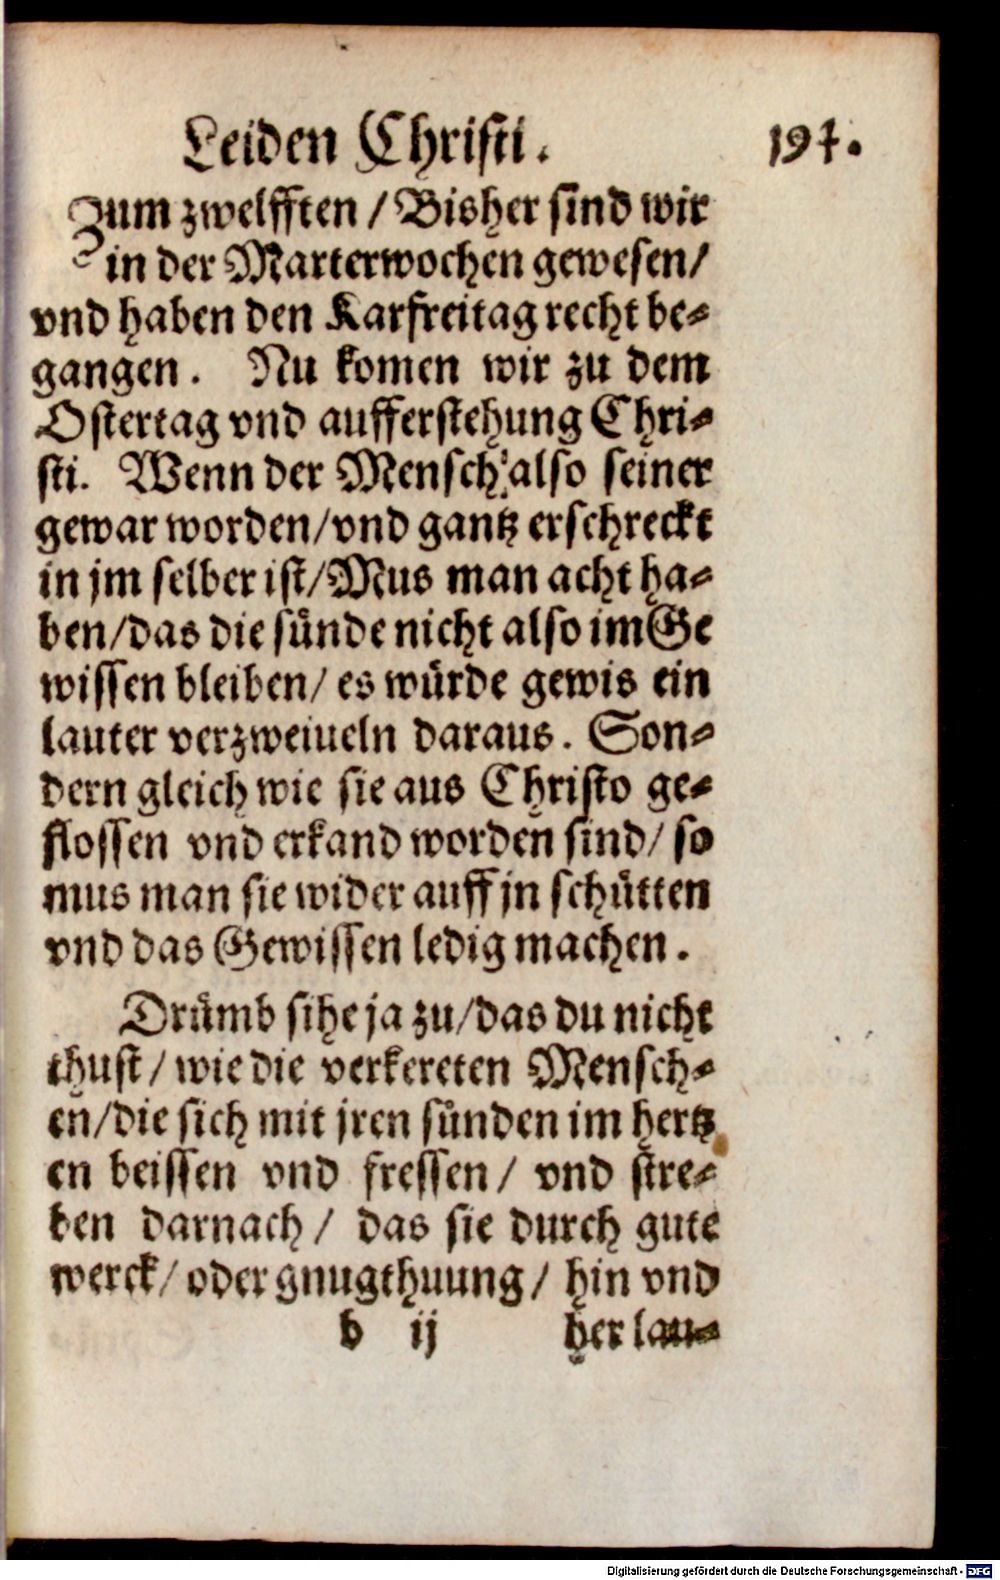 Leiden Christi. 191.
Zum zwelfften / Bisher sind wir
in der Marterwochen gewesen/
vnd haben den Karfreitag recht be-
gangen. Nu komen wir zu dem
Ostertag vnd aufferstehung Chri-
sti. Wenn der Mensch also seiner
gewar worden/vnd gantz erschreckt
in jm selber ist/Mus man acht ha-
ben/das die sünde nicht also im Ge
wissen bleiben/ es würde gewis ein
lauter verzweiueln daraus. Son-
dern gleich wie sie aus Christo ge-
flossen vnd erkand worden sind/ so
mus man sie wider auff jn schütten
vnd das Gewissen ledig machen.
Drümb sihe ja zu/das du nicht
thust/ wie die verkereten Mensch-
en/die sich mit jren sünden im hertz
en beissen vnd fressen/ vnd stre-
ben darnach/ das sie durch gute
werck/ oder gnugthuung/ hin vnd
b ij her lau-
Digitalisierung gefördert durch die Deutsche Forschungsgemeinschaft - DFG